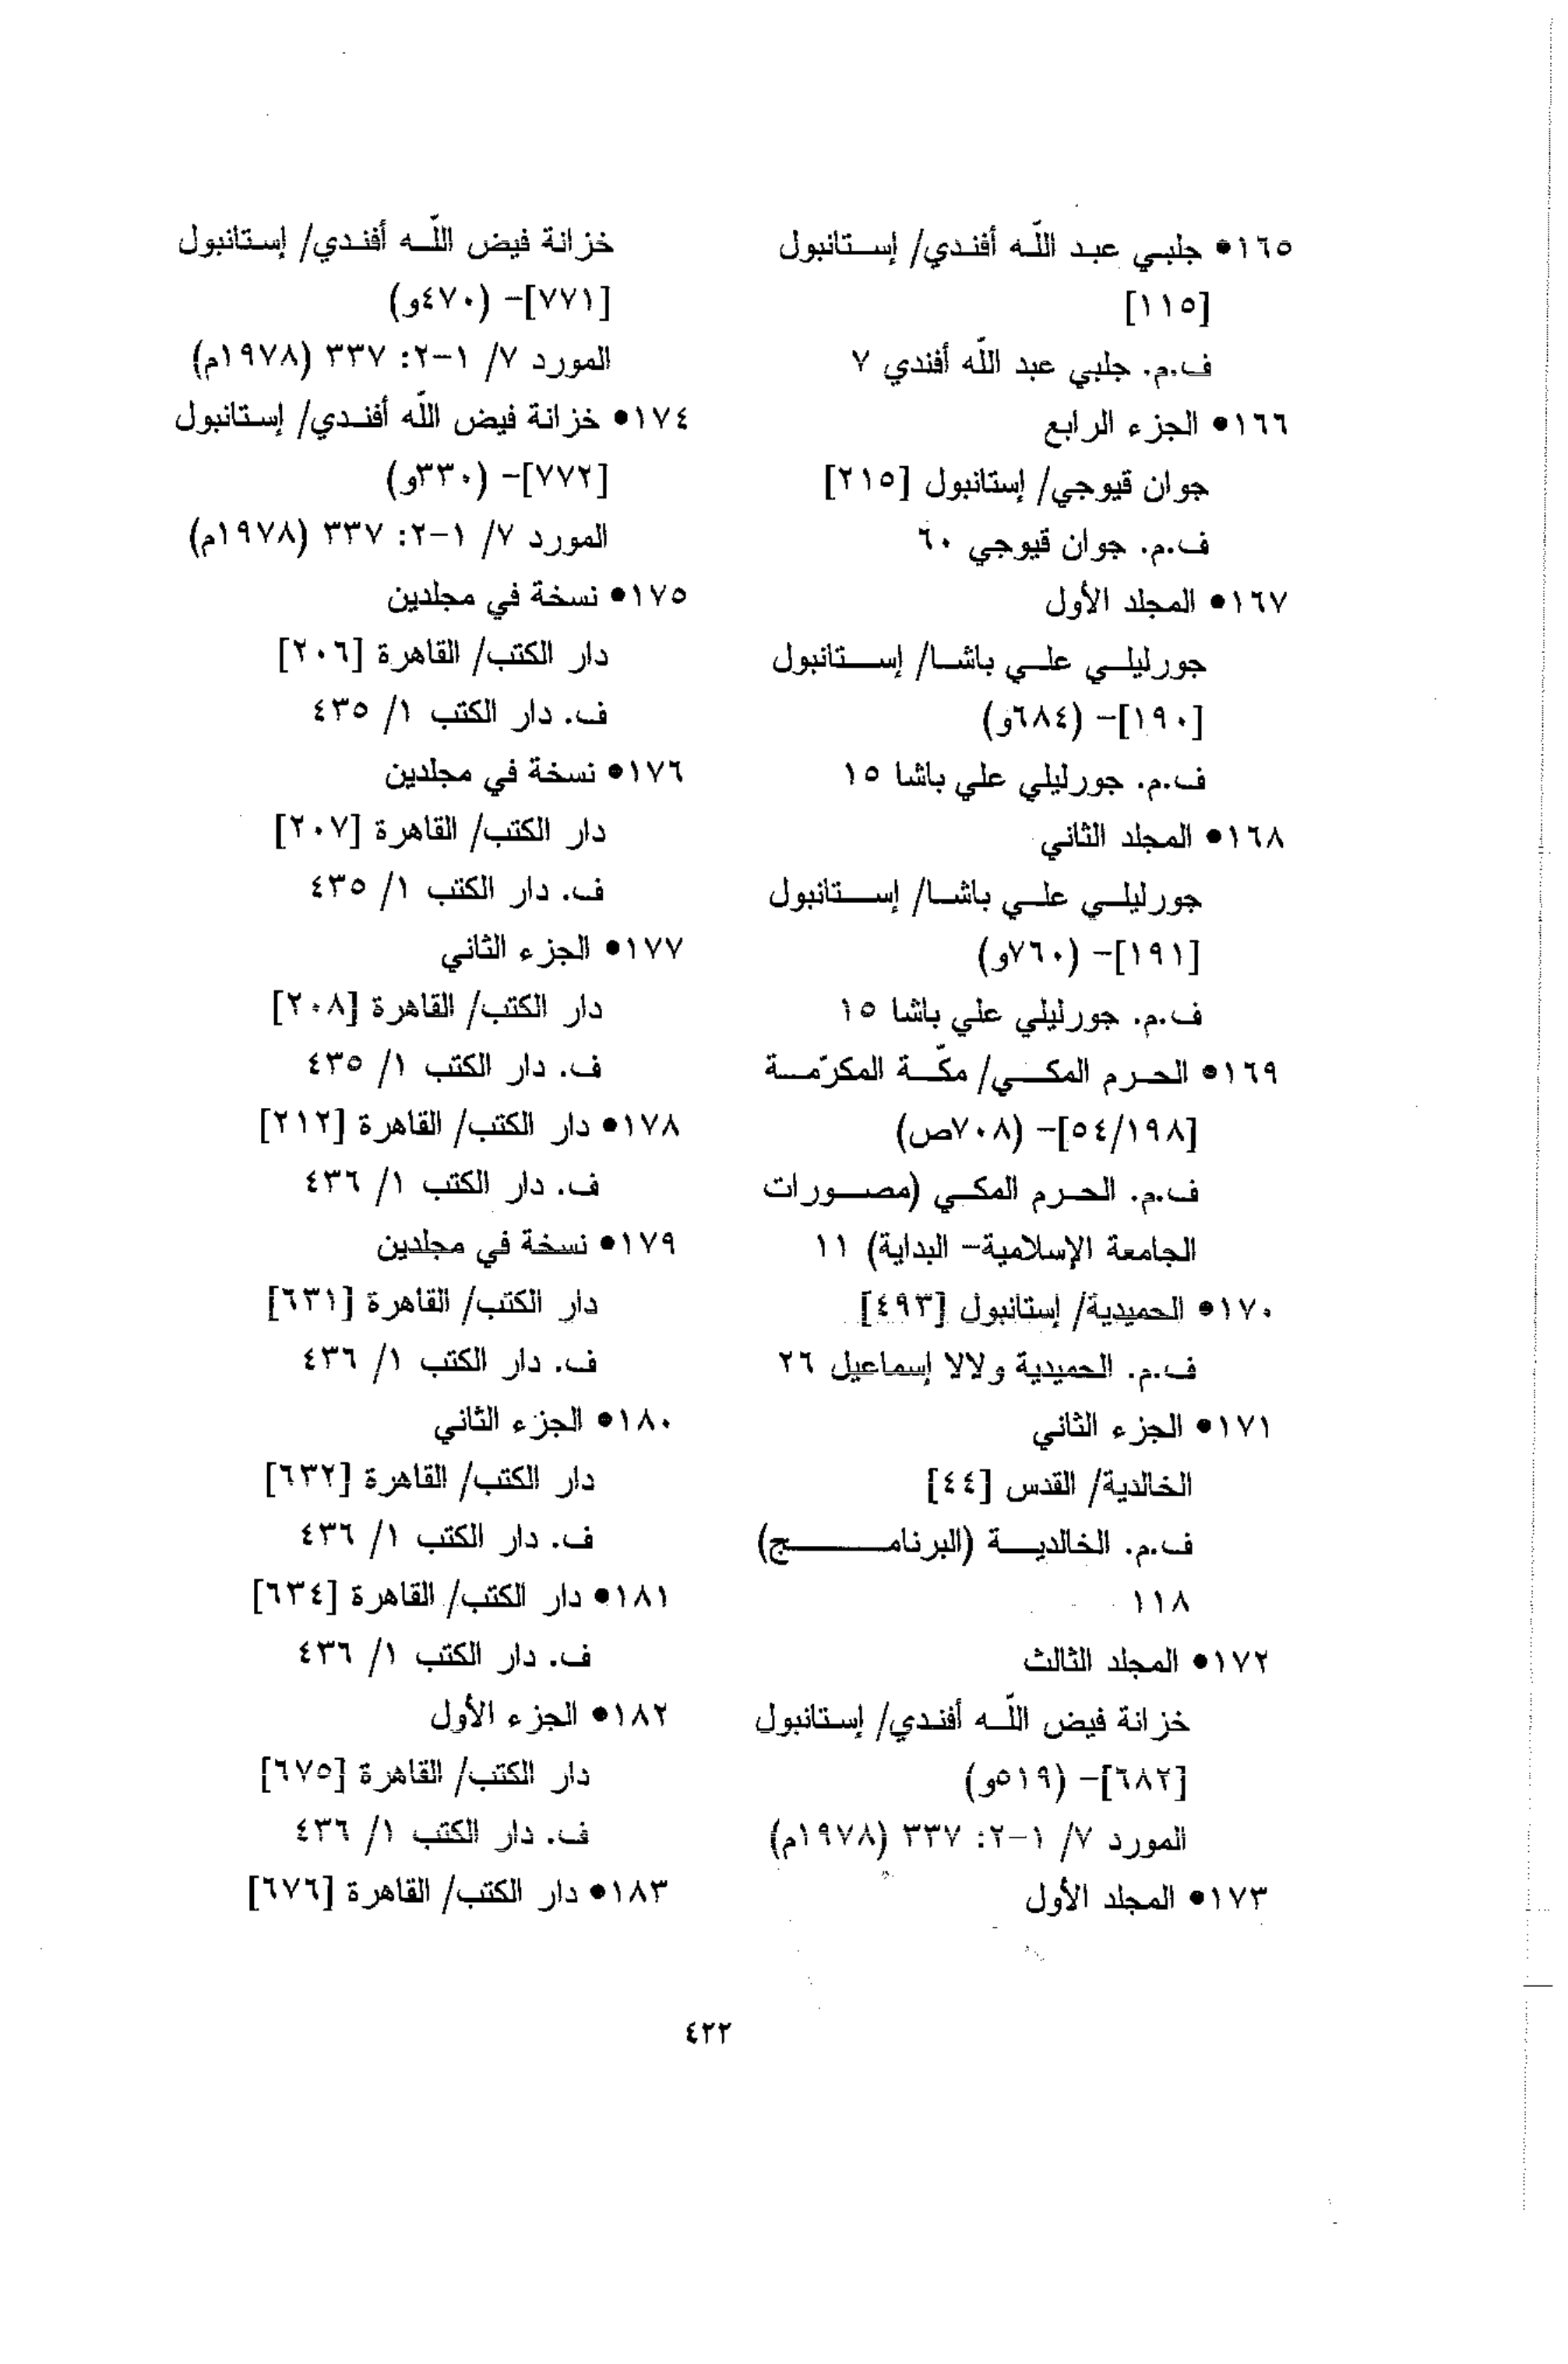 ١٦٥• جلبي عبد اللّه أفندي/ إستانبول
[١١٥]
ف.م. جلبي عبد اللّه أفندي ٧
١٦٦• الجزء الرابع
جوان قيوجي/ إستانبول [٢١٥]
ف.م. جوان قيوجي ٦٠
١٦٧• المجلد الأول
جورليلي علي باشا/ إستانبول
[١٩٠]- (٦٨٤و)
ف.م. جورليلي علي باشا ١٥
١٦٨• المجلد الثاني
جورليلي علي باشا/ إستانبول
[١٩١]- (٧٦٠و)
ف.م. جورليلي علي باشا ١٥
١٦٩• الحرم المكي/ مكّة المكرّمة
[٥٤/١٩٨]- (٧٠٨ص)
ف.م. الحرم المكي (مصورات
الجامعة الإسلامية- البداية) ١١
١٧٠• الحميدية/ إستانبول [٤٩٣]
ف.م. الحميدية ولالا إسماعيل ٢٦
١٧١• الجزء الثاني
الخالدية/ القدس [٤٤]
ف.م. الخالدية (البرنامج)
١١٨
١٧٢• المجلد الثالث
خزانة فيض اللّه أفندي/ إستانبول
[٦٨٢]- (٥١٩و)
المورد ٧/ ١-٢: ٣٣٧ (١٩٧٨م)
١٧٣• المجلد الأول
خزانة فيض اللّه أفندي/ إستانبول
[٧٧١]- (٤٧٠و)
المورد ٧/ ١-٢: ٣٣٧ (١٩٧٨م)
١٧٤• خزانة فيض اللّه أفندي/ إستانبول
[٧٧٢]- (٣٣٠و)
المورد ٧/ ١-٢: ٣٣٧ (١٩٧٨م)
١٧٥• نسخة في مجلدين
دار الكتب/ القاهرة [٢٠٦]
ف. دار الكتب ١/ ٤٣٥
١٧٦• نسخة في مجلدين
دار الكتب/ القاهرة [٢٠٧]
ف. دار الكتب ١/ ٤٣٥
١٧٧• الجزء الثاني
دار الكتب/ القاهرة [٢٠٨]
ف. دار الكتب ١/ ٤٣٥
١٧٨• دار الكتب/ القاهرة [٢١٢]
ف. دار الكتب ١/ ٤٣٦
١٧٩• نسخة في مجلدين
دار الكتب/ القاهرة [٦٣١]
ف. دار الكتب ١/ ٤٣٦
١٨٠• الجزء الثاني
دار الكتب/ القاهرة [٦٣٢]
ف. دار الكتب ١/ ٤٣٦
١٨١• دار الكتب/ القاهرة [٦٣٤]
ف. دار الكتب ١/ ٤٣٦
١٨٢• الجزء الأول
دار الكتب/ القاهرة [٦٧٥]
ف. دار الكتب ١/ ٤٣٦
١٨٣• دار الكتب/ القاهرة [٦٧٦]
٤٢٢